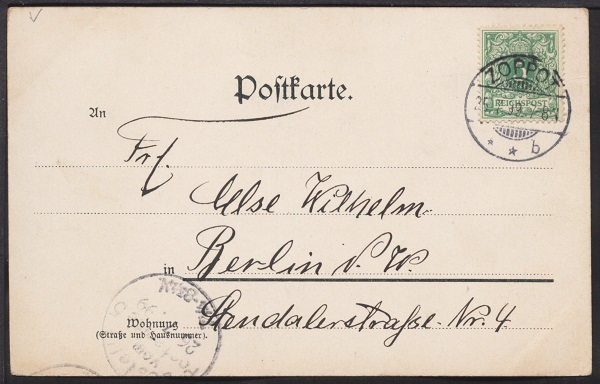 Postkarte.
ZOPPOT
REICHSPOST
* * b
An
Frl.
Else Wilhelm
Berlin N. W.
in
Stendalerstraße Nr. 4
Wohnung
(Straße und Hausnummer).